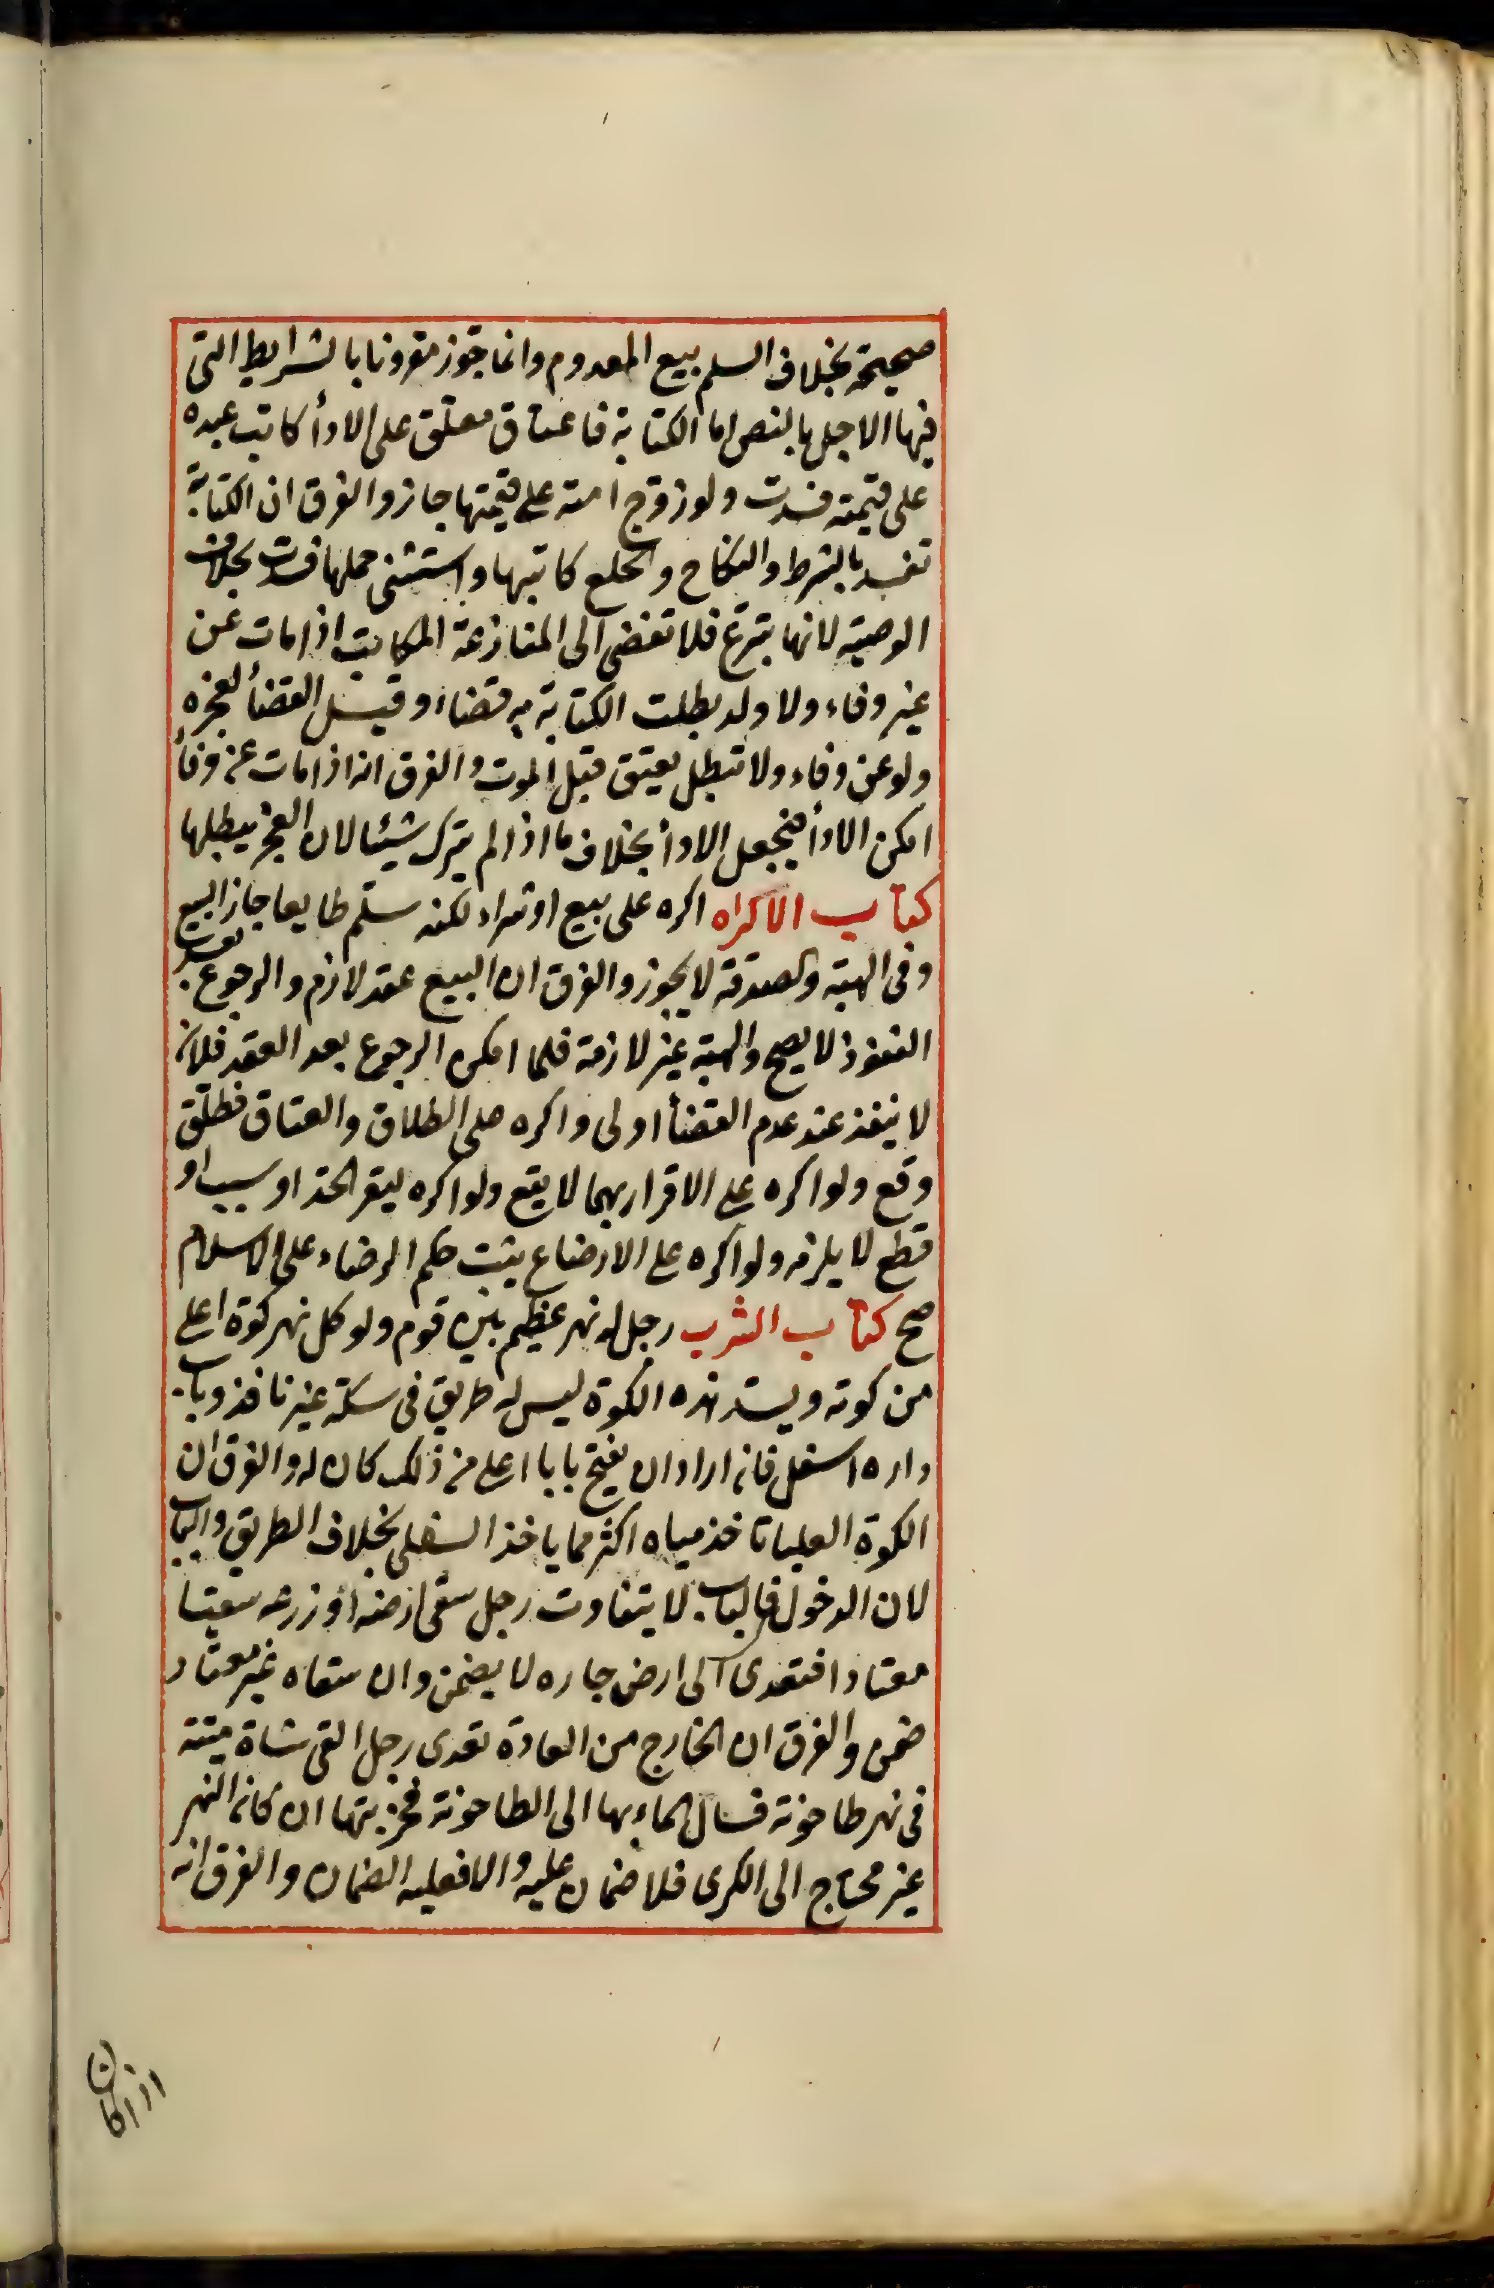 صحيحة بخلاف السلم بيع المعدوم وانما تجوز مقرونا بالشرايط التى
فيها الاجل بالنص اما الكتابة فاعتاق معلق على الادأ كاتب عبده
على قيمته فسدت ولو زوج امته على قيمتها جاز والفرق ان الكتابة
تفسد بالشرط والنكاح والخلع كاتبها واستثنى حملها فسدت بخلاف
الوصية لانها تبرع فلا تفضى الى المنازعة المكاتب اذا مات عن
غير وفاء ولا ولد بطلت الكتابة قضاء وقيل القضأ لعجزه
ولو عن وفاء ولا تبطل يعتق قبل الموت والفرق انه اذا مات عن وفأ
امكن الادأ فيجعل الادأ بخلاف ما اذا لم يترك شيئا لان العجز يبطلها
كتاب الاكراه اكره على بيع او شراء لكنه سلم طايعا جاز البيع
وفى الهبة والصدقة لا يجوز والفرق ان البيع عقد لازم والرجوع بعد
النفوذ لا يصح والهبة غير لازمة فلما امكن الرجوع بعد العقد فلان
لا ينفذ عند عدم القضأ اولى واكره على الطلاق والعتاق فطلق
وقع ولو اكره على الاقرار بهما لا يقع ولو اكره ليقر الحد او سبب او
قطع لا يلزمه ولو اكره على الارضاع يثبت حكم الرضاء على الاسلام
صح كتاب الشرب رجل له نهر عظيم بين قوم ولو كل نهر كوة اعلى
من كوته ويسد هذه الكوة ليس له طريق فى سكة غير نافذ وباب
داره اسفل فانه اراد ان يفتح بابا اعلى من ذلك كان له والفرق ان
الكوة العليا تاخذ مياه اكثر مما ياخذ السفلى بخلاف الطريق والباب
لان الدخول فى الباب لا يتفاوت رجل سقى ارضه او زرعه سقيا
معتادا فتعدى الى ارض جاره لا يضمن وان سقاه غير معتاد
ضمن والفرق ان الخارج من العادة تعدى رجل القى شاة ميتة
فى نهر طاحونة فسال الماء بها الى الطاحونة فخربتها ان كان النهر
غير محتاج الى الكرى فلا ضمان عليه والا فعليه الضمان والفرق انه